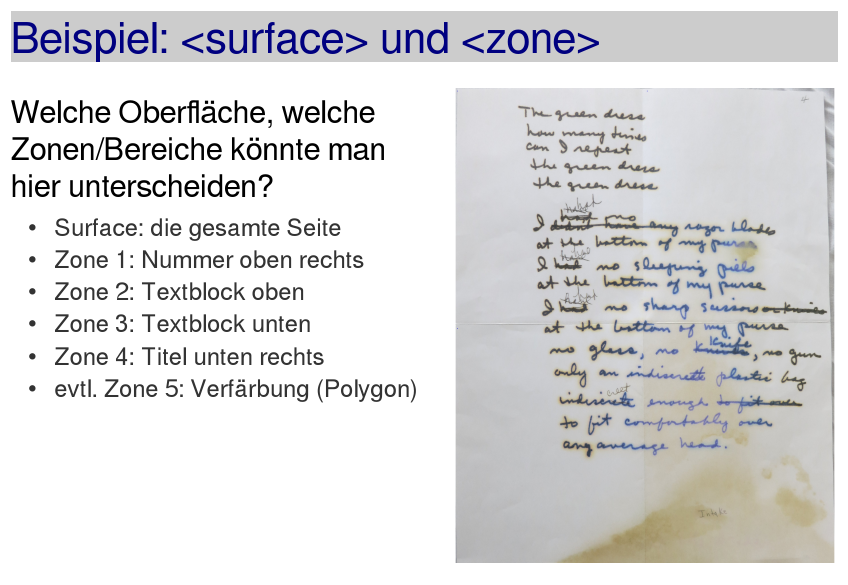 Beispiel: <surface> und <zone>
Welche Oberfläche, welche
Zonen/Bereiche könnte man
hier unterscheiden?
• Surface: die gesamte Seite
• Zone 1: Nummer oben rechts
• Zone 2: Textblock oben
• Zone 3: Textblock unten
• Zone 4: Titel unten rechts
• evtl. Zone 5: Verfärbung (Polygon)
The green dress
how many times
can I repeat
the green dress
the green dress
had no
I didn't have any razor blades
at the bottom of my purse
I had no sleeping pills
at the bottom of my purse
I had no sharp scissors or knives
at the bottom of my purse
knife
no glass, no knives, no gun
only an indiscrete plastic bag
indiscrete enough to fit over
to fit comfortably over
any average head.